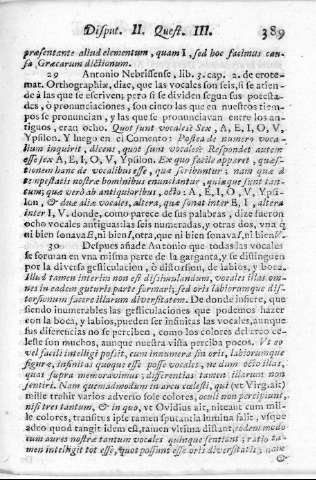 Disput. II. Quest. III. 389
præsentante aliud elementum, quam I, sed hoc facimus cau-
sa Græcarum dictionum.
29 Antonio Nebrissense, lib. 3. cap. 2. de erote-
mat. Orthographiæ, dize, que las vocales son seis, si se atien-
de à las que se escriven; pero si se dividen segun sus potesta-
des, ò pronunciaciones, son cinco las que en nuestros tiem-
pos se pronuncian, y las que se pronunciavan entre los an-
tiguos, eran ocho. Quot sunt vocales? Sex, A, E, I, O, V,
Ypsilon. Y luego en el Comento: Postea de numero voca-
lium inquirit, dicens, quot sunt vocales? Respondet autem
esse sex A, E, I, O, V, Ypsilon. Ex quo facilè apparet, quæs-
tionem hanc de vocalibus esse, quæ scribuntur; nam quæ à
tempestatis nostræ hominibus enuntiantur, quinque sunt tan-
tum; quæ verò ab antiquioribus, octo: A, E, I, O, V, Ypsi-
lon, & duæ aliæ vocales, altera, quæ sonat inter E, I, altera
inter I, V. donde, como parece de sus palabras, dize fueron
ocho vocales antiguas las seis numeradas, y otras dos, vna q
ni bien sonava E, ni bien I, otra, que ni bien sonava I, ni bien V.
30 Despues añade Antonio que todas las vocales
se forman en vna misma parte de la garganta, y se distinguen
por la diversa gesticulacion, ò distorsion, de labios, y boca.
Illud tamen interim non est dissimulandum, vocales illas om-
nes in eadem guturis parte formari, sed oris labiorumque dis-
torsionum facere illarum diversitatem. De donde infiere, que
siendo innumerables las gesticulaciones que podemos hazer
con la boca, y labios, pueden ser infinitas las vocales, aunque
sus diferencias no se perciben, como los colores del arco ce-
leste son muchos, aunque nuestra vista perciba pocos. Vt ex
vel facilè intelligi possit, cum innumera sin oris, labiorumque
figuræ, infinitas quoque esse posse vocales, nedum octo illas,
quas supra memoravimus; differentias tamen illarum non
sentiri. Nam quemadmodum in arcu cœlesti, qui (vt Virg. ait)
mille trahit varios adverso sole colores, oculi non percipiunt,
nisi tres tantum, & in quo, vt Ovidius ait, niteant cum mil-
le colores, transitus ipse tamen spectantia lumina fallit, vsque
adeo quod tangit idem est, tamen vltima distant, eodem modo
cum aures nostræ tantum vocales quinque sentiant; ratio ta-
men intelligit tot esse, quot possunt esse oris diversitates; nam